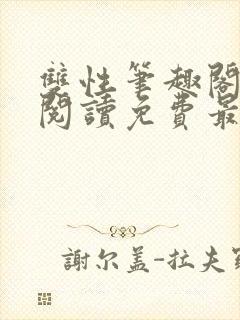 雙性筆趣閣
閱讀免費最
謝尔盖-拉夫